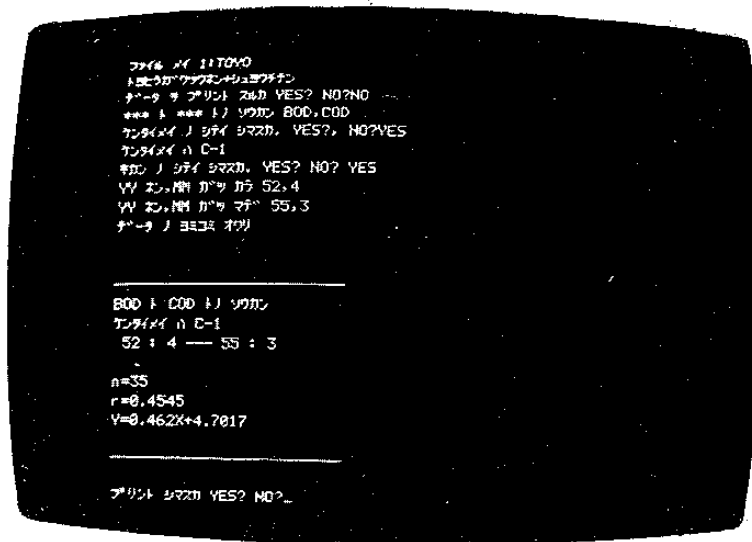 ファイル メイ 1:TOYO
データ ヲ プリント スルカ YES? NO?NO
*** ト *** トノ ソウカン BOD,COD
ケンタイメイ ノ シテイ シマスカ. YES?, NO?YES
ケンタイメイ ハ C-1
キカン ノ シテイ シマスカ. YES? NO? YES
YY ネン,MM ガツ カラ 52,4
YY ネン,MM ガツ マデ 55,3
データ ノ ヨミコミ オワリ
BOD ト COD トノ ソウカン
ケンタイメイ ハ C-1
52 : 4 --- 55 : 3
n=35
r=0.4545
Y=0.462X+4.7017
プリント シマスカ YES? NO?_